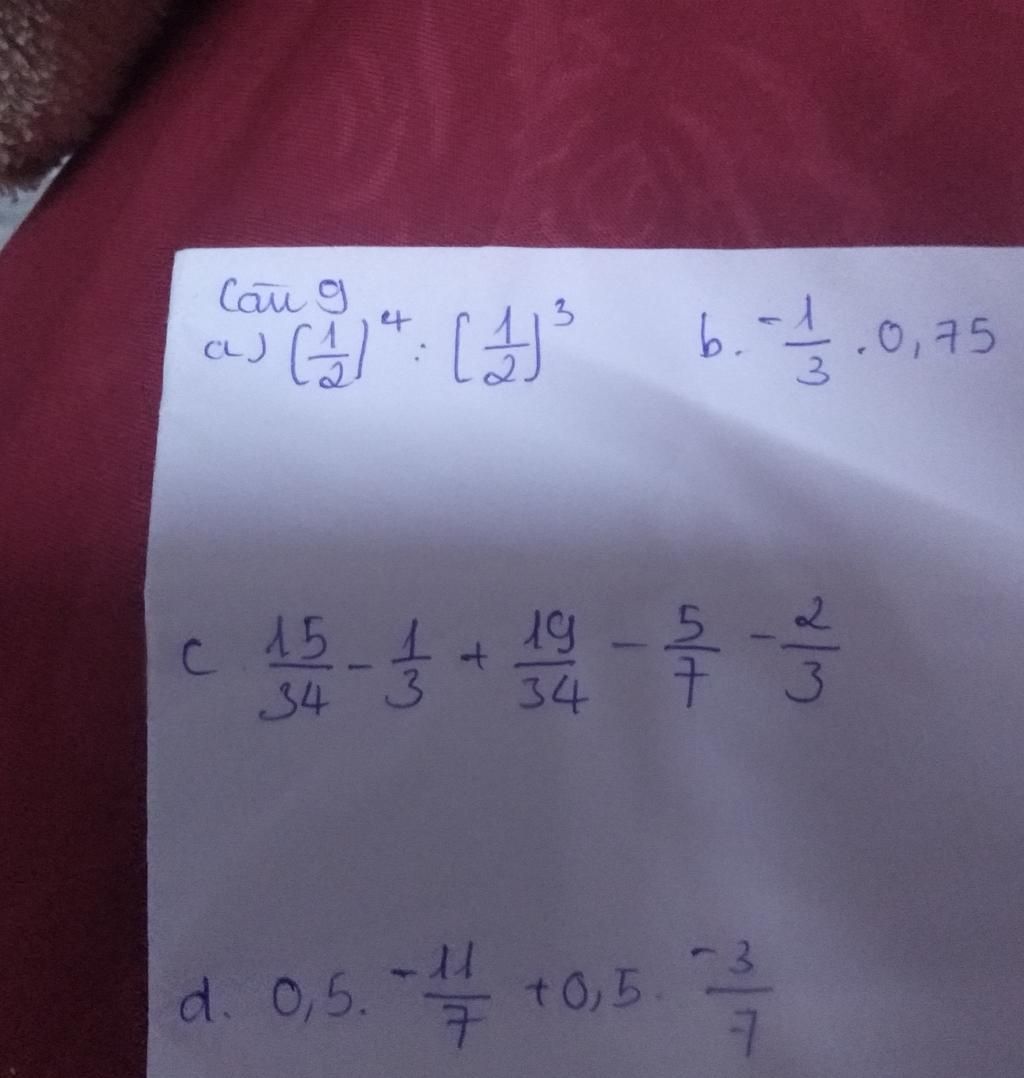 Câu 9
a) (1/2)^4 : (1/2)^3 b. -1/3 . 0,75
c 15/34 - 1/3 + 19/34 - 5/7 - 2/3
d. 0,5. -11/7 + 0,5. -3/7